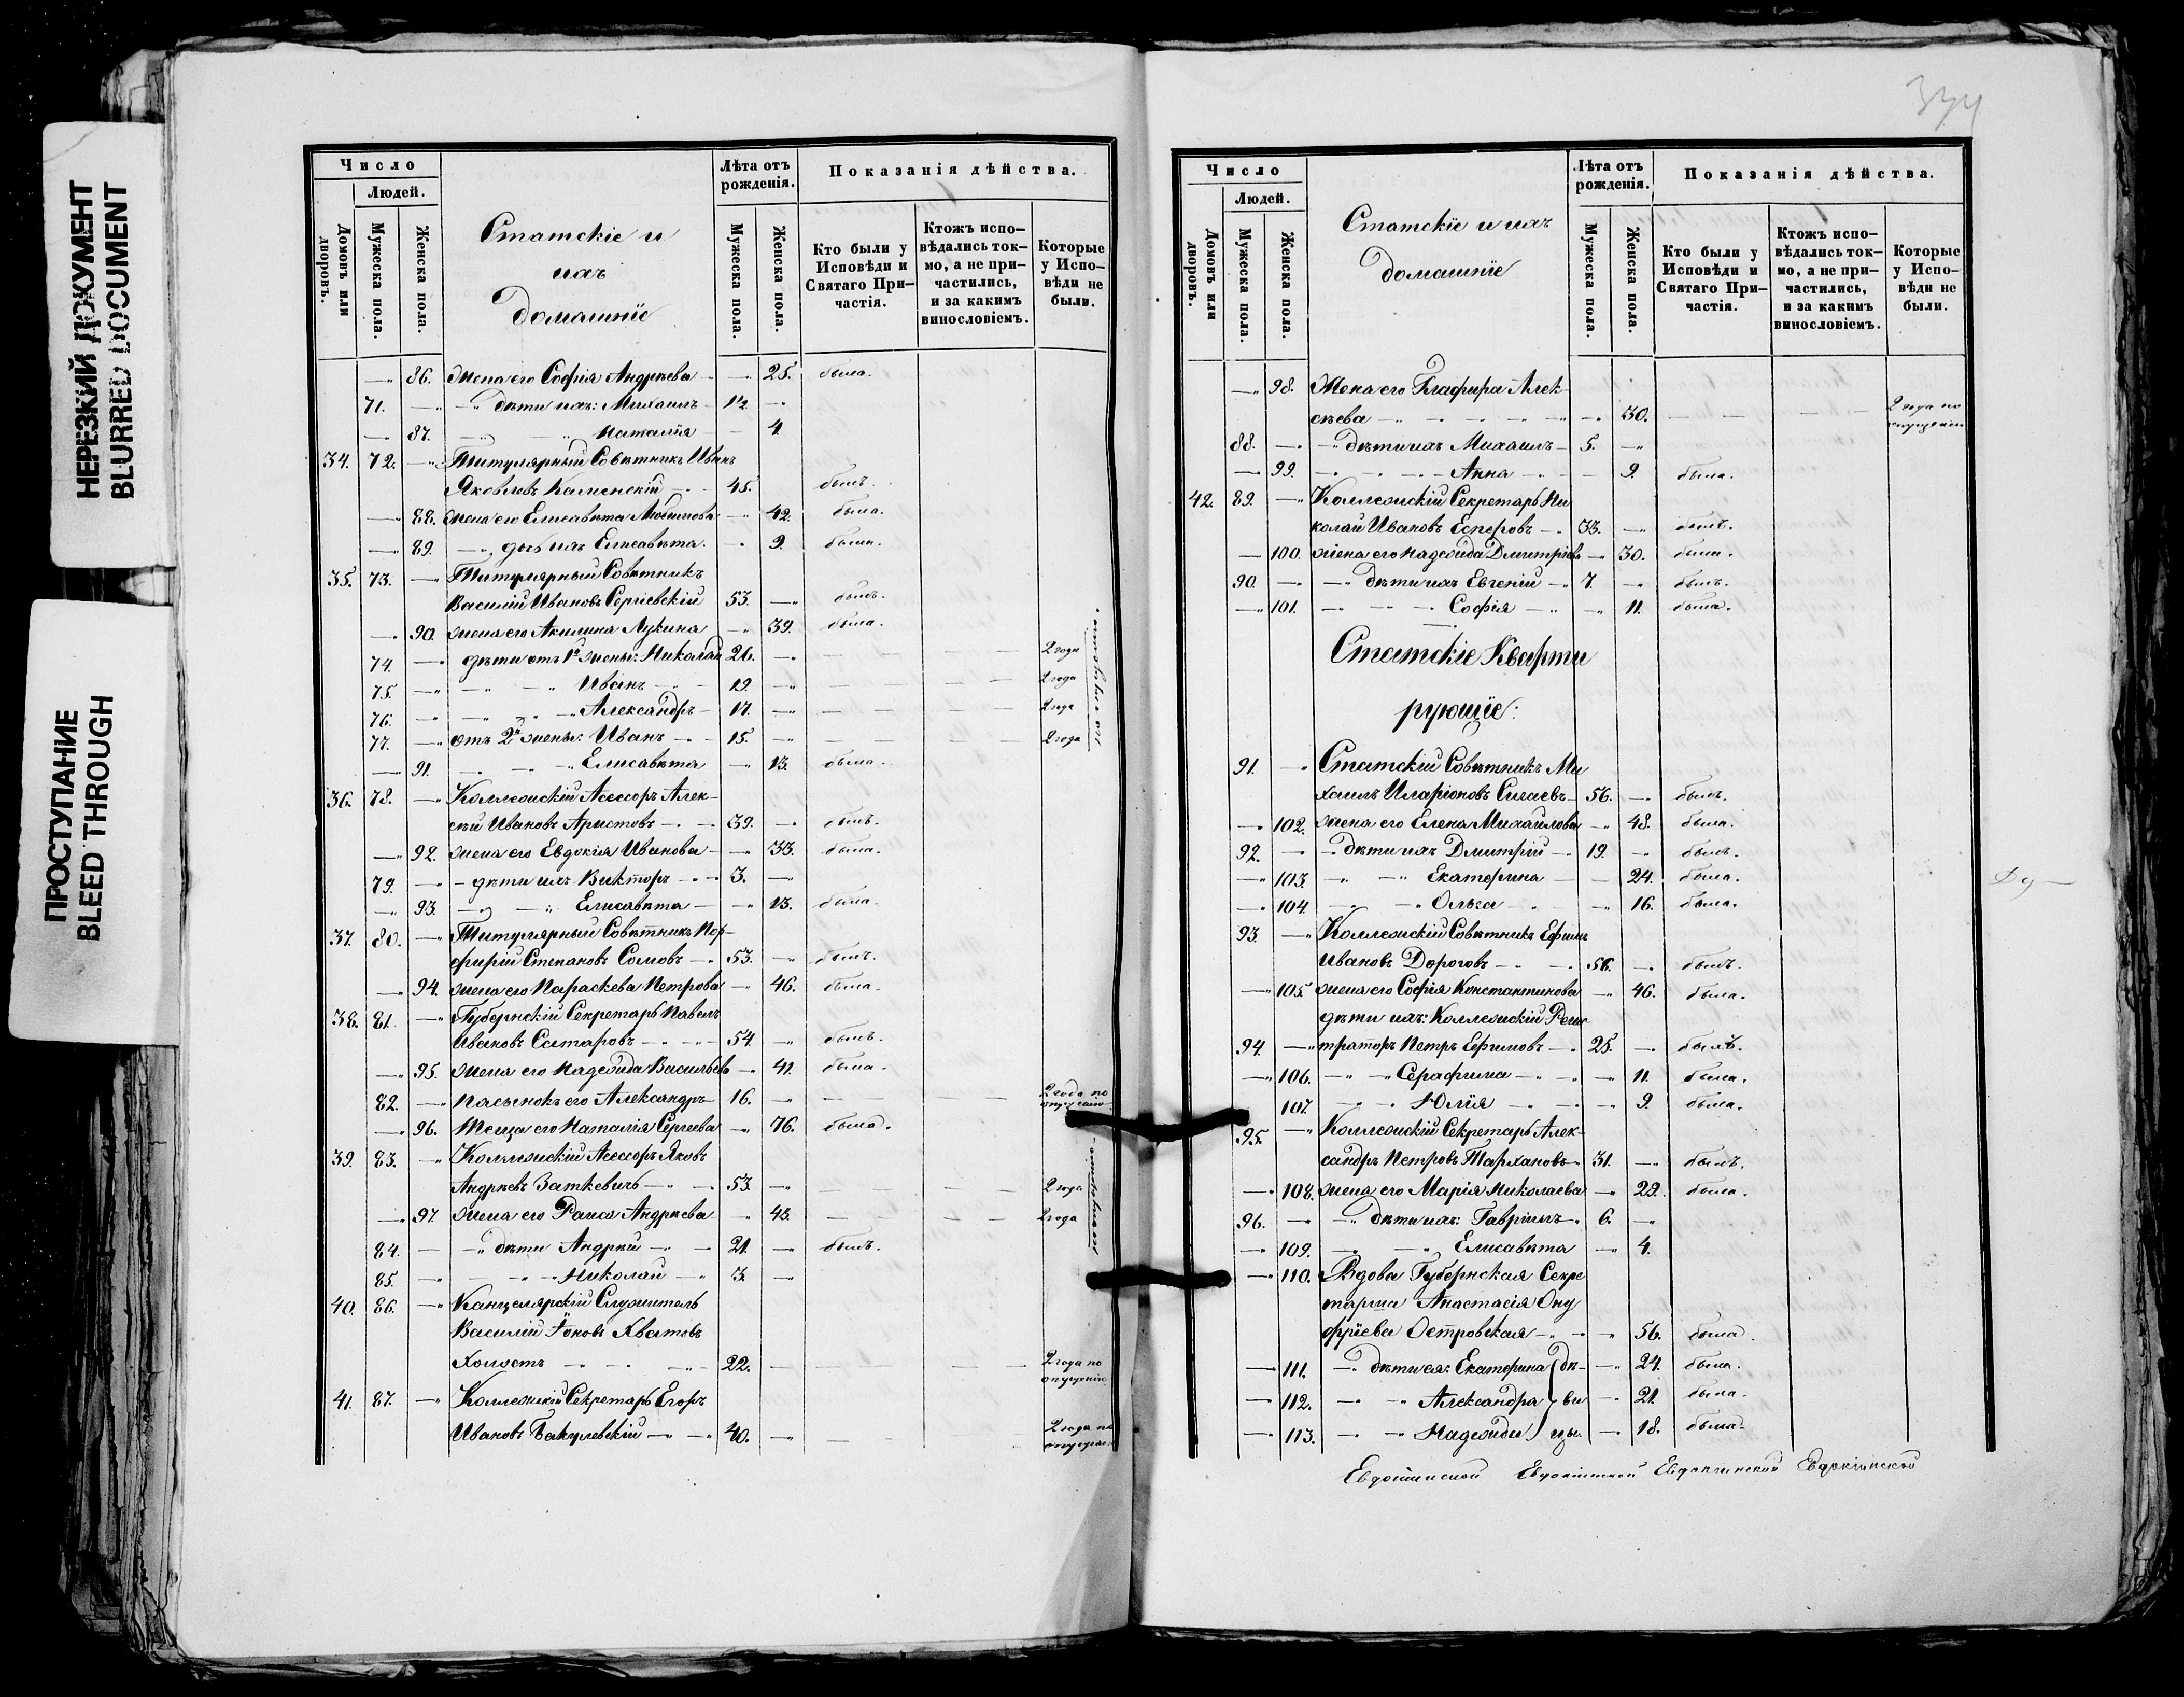 НЕРЕЗКИЙ ДОКУМЕНТ
BLURRED DOCUMENT
ПРОСТУПАНИЕ
BLEED THROUGH
Число
Людей.
Домовъ или дворовъ.
Мужеска пола.
Женска пола.
Статскіе и
ихъ
домашніе
Лѣта отъ рожденія.
Мужеска пола.
Женска пола.
Показанія дѣйства.
Кто были у Исповѣди и Святаго Причастія.
Ктожъ исповѣдались токмо, а не причастились, и за какимъ винословіемъ.
Которые у Исповѣди не были.
86. Жена его Софія Андреева 25. была.
71. дѣти ихъ: Михаилъ 12
87. Наталія 4.
34. 72. Титулярный Совѣтникъ Иванъ
Яковлевъ Каменскій 45. былъ.
88. жена его Елисавета Любимова 42. была.
89. дочь ихъ Елисавета. 9. была.
35. 73. Титулярный Совѣтникъ
Василій Ивановъ Сергіевскій 53. былъ.
90. жена его Акилина Лукина 39. была.
74. дѣти отъ 1й жены: Николай 26. 2 года
75. Иванъ 19. 2 года
76. Александръ 17. 2 года
77. отъ 2й жены: Иванъ 15. 2 года
91. Елисавета 13. была.
36. 78. Коллежскій Асессоръ Алек-
сѣй Ивановъ Аристовъ 39. былъ.
92. жена его Евдокія Иванова 33. была.
79. дѣти ихъ Викторъ 3.
93. Елисавета 13. была.
37. 80. Титулярный Совѣтникъ Пор-
фирій Степановъ Сомовъ 53. былъ.
94. жена его Параскева Петрова 46. была.
38. 81. Губернскій Секретарь Павелъ
Ивановъ 54. былъ.
95. жена его Надежда Васильева 41. была.
82. Пасынокъ его Александръ 16. 2 года по опущенію
96. Теща его Наталія Сергеева 76. была.
39. 83. Коллежскій Асессоръ Яковъ
Андреевъ Заткевичъ 53. 2 года
97. жена его Раиса Андреева 43. 2 года
84. дѣти Андрей 21. былъ.
85. Николай 3.
40. 86. Канцелярскій Служитель
Василій Хватовъ
холостъ 22. 2 года по опущенію
41. 87. Коллежскій Секретарь Егоръ
Ивановъ Бакулевскій 40. 2 года по
Число
Людей.
Домовъ или дворовъ.
Мужеска пола.
Женска пола.
Статскіе и ихъ
домашніе
Лѣта отъ рожденія.
Мужеска пола.
Женска пола.
Показанія дѣйства.
Кто были у Исповѣди и Святаго Причастія.
Ктожъ исповѣдались токмо, а не причастились, и за какимъ винословіемъ.
Которые у Исповѣди не были.
98. Жена его Глафира Алек-
сѣева 30. 2 года по опущенію
88. дѣти ихъ Михаилъ 5.
99. Анна 9. была.
42. 89. Коллежскій Секретарь Ни
колай Ивановъ Есперовъ 33. былъ.
100. жена его Надежда Дмитріева 30. была.
90. дѣти ихъ Евгеній 7. былъ.
101. Софія 11. была.
Статскіе Кварти
рующіе:
91. Статскій Совѣтникъ Ми
хаилъ Иларіоновъ 56. былъ.
102. жена его Елена Михайлова 48. была.
92. дѣти ихъ Дмитрій 19. былъ.
103. Екатерина 24. была.
104. Ольга 16. была.
93. Коллежскій Совѣтникъ Ефимъ
Ивановъ Дороговъ 56. былъ.
105. жена его Софія Константинова 46. была.
дѣти ихъ: Коллежскій Реги
94. страторъ Петръ Ефимовъ 25. былъ.
106. Серафима 11. была.
107. Юлія 9. была.
95. Коллежскій Секретарь Алек-
сандръ Петровъ Тархановъ 31. былъ.
108. жена его Марія Николаева 29. была.
96. дѣти ихъ: Гавріилъ 6.
109. Елисавета 4.
110. Вдова Губернская Секре
тарша Анастасія Ону
фріева Островская 56. была.
111. дѣти ея: Екатерина дѣ- 24. была.
112. Александра ви 21. была.
113. Надежда цы 18. была.
Евдокіинской Евдокіинской Евдокіинской Евдокіинской